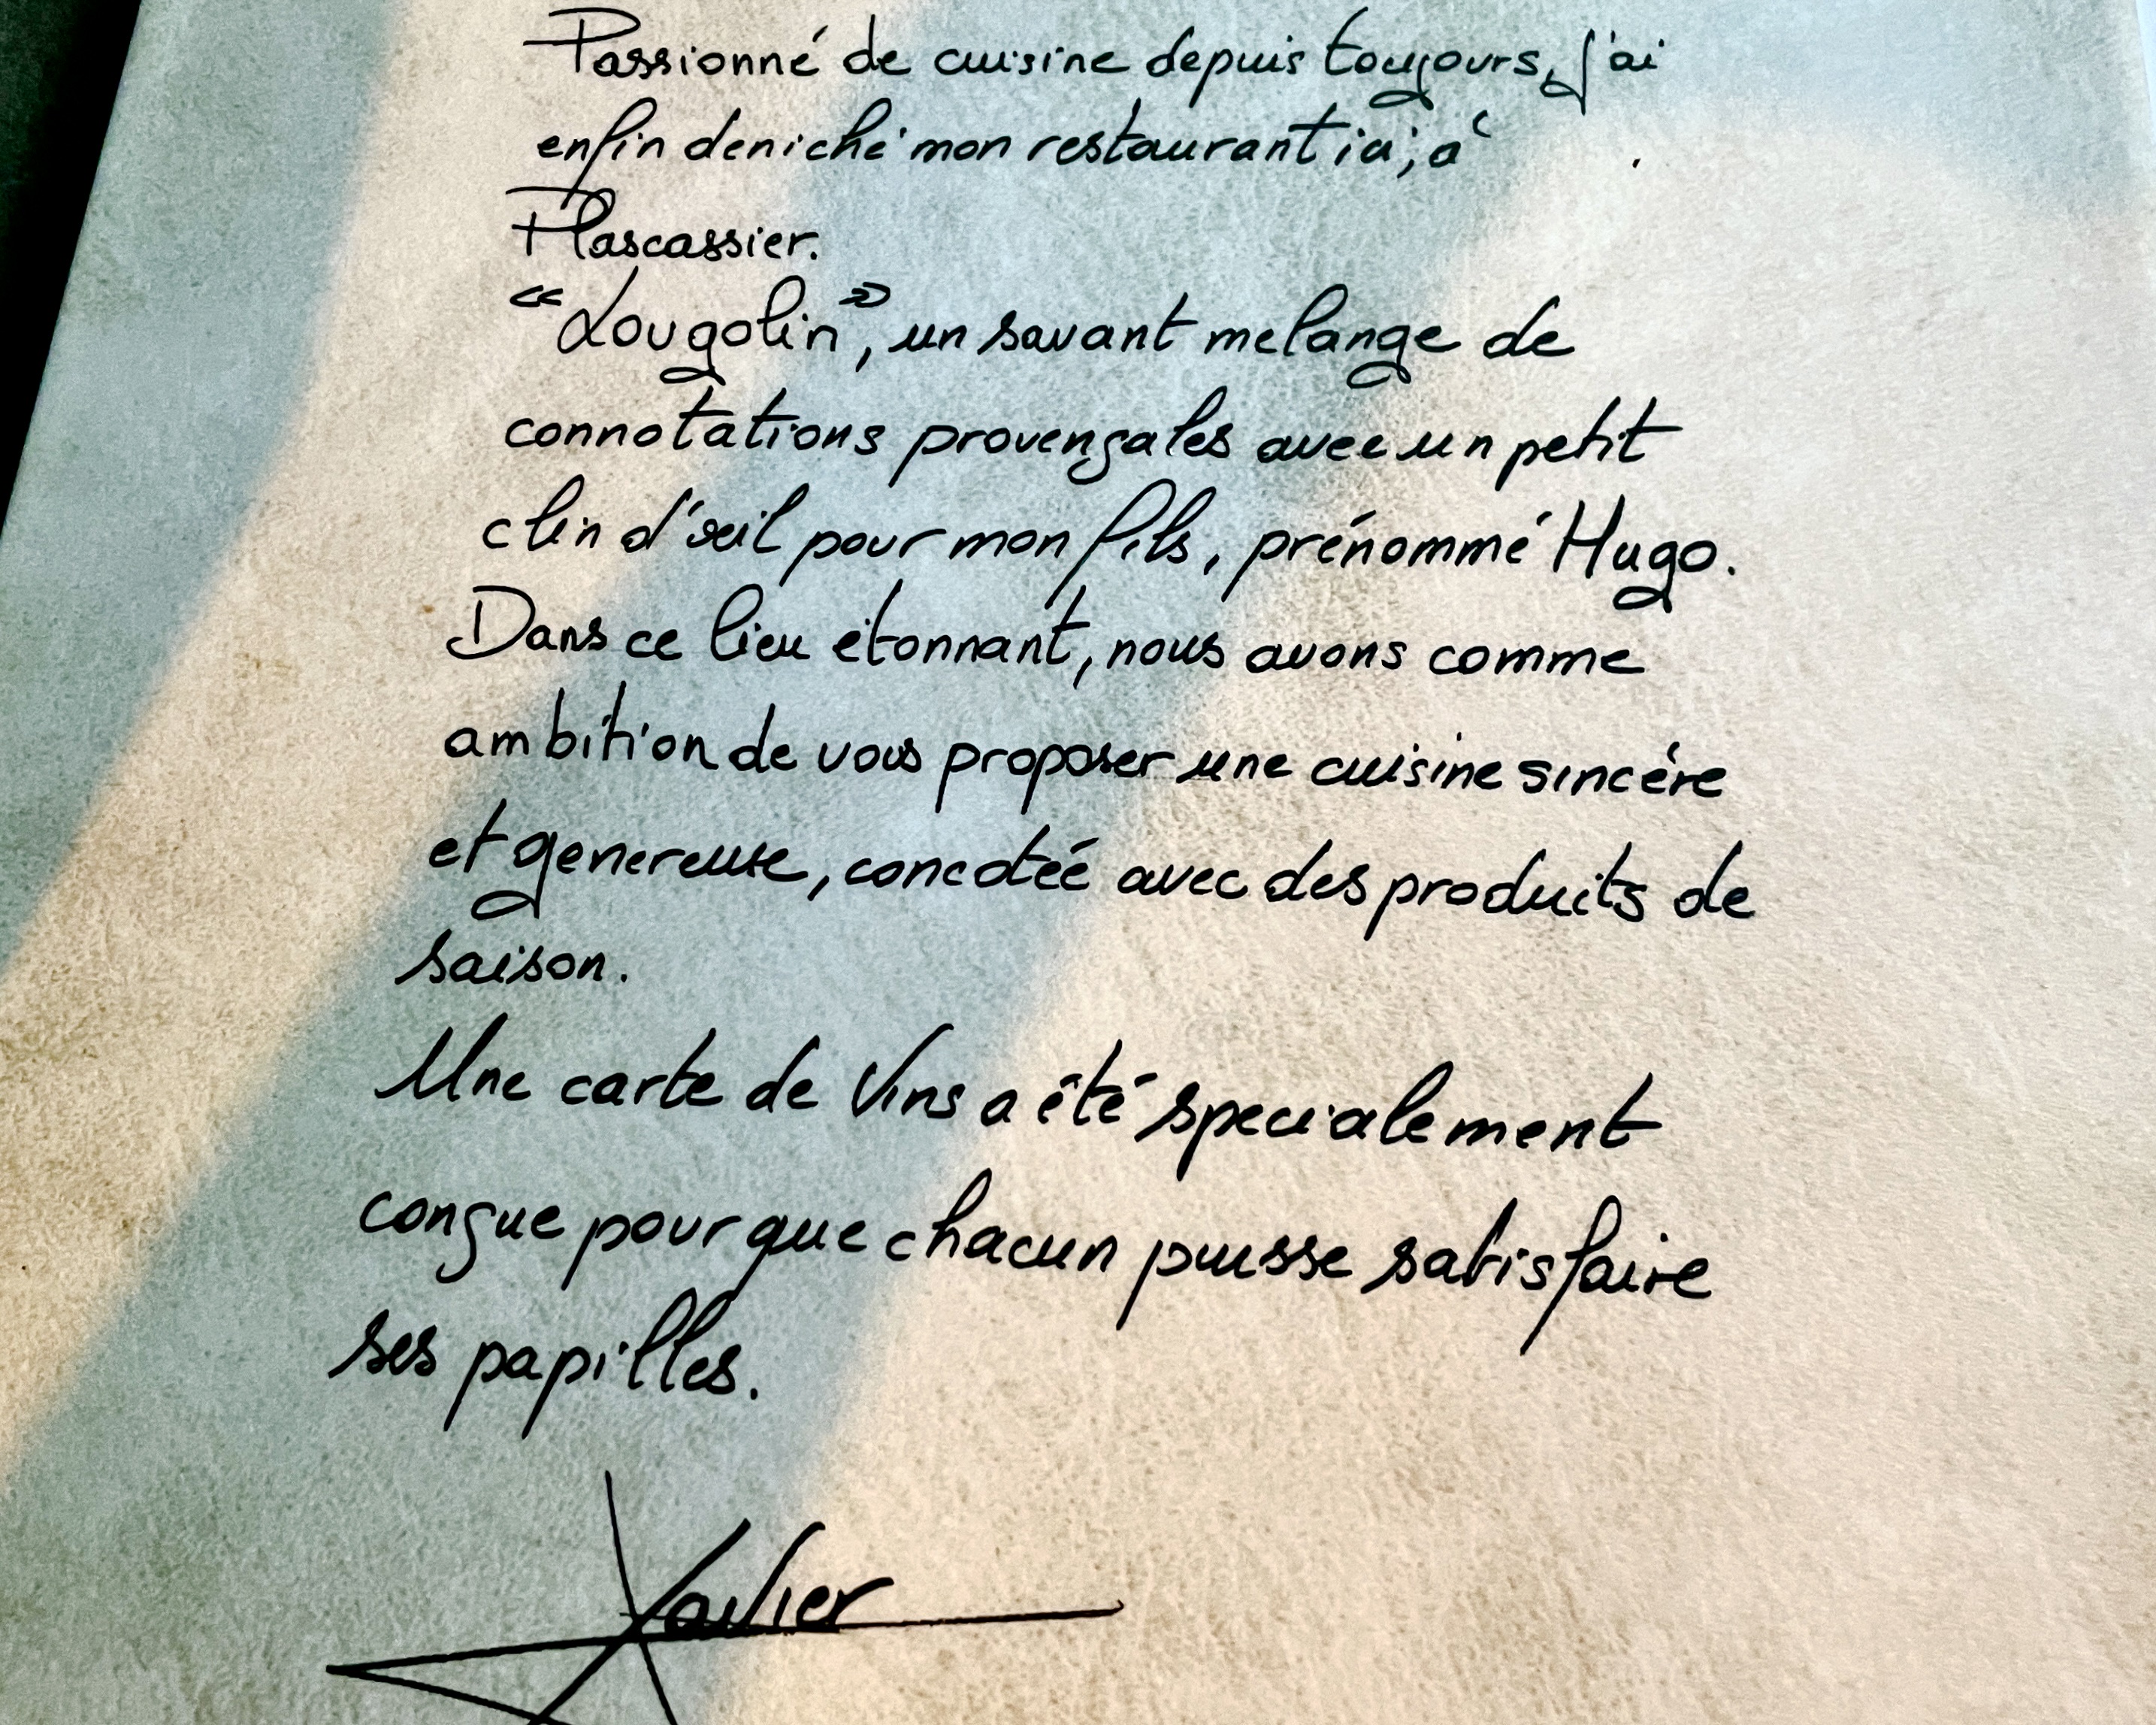 Passionné de cuisine depuis toujours, j'ai
enfin deniché mon restaurant ici, à
Plascassier.
"Lougolin", un savant melange de
connotations provençales avec un petit
clin d'œil pour mon fils, prénommé Hugo.
Dans ce lieu étonnant, nous avons comme
ambition de vous proposer une cuisine sincére
et genereuse, concoteé avec des produits de
saison.
Une carte de Vins a été specialement
conçue pour que chacun puisse satisfaire
ses papilles.
Xavier